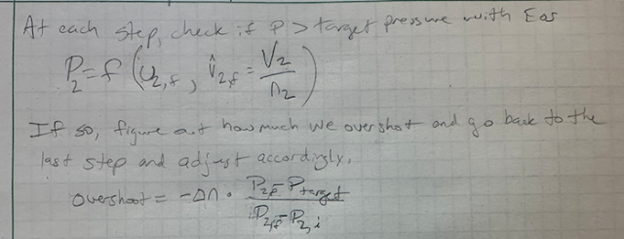 At each step, check if P > target pressure with EoS
P₂ = f (U₂,f , V̂₂,f = V₂/n₂)
If so, figure out how much we overshot and go back to the
last step and adjust accordingly.
Overshoot = -Δn · (P₂,f - P target)/(P₂,f - P₂,i)